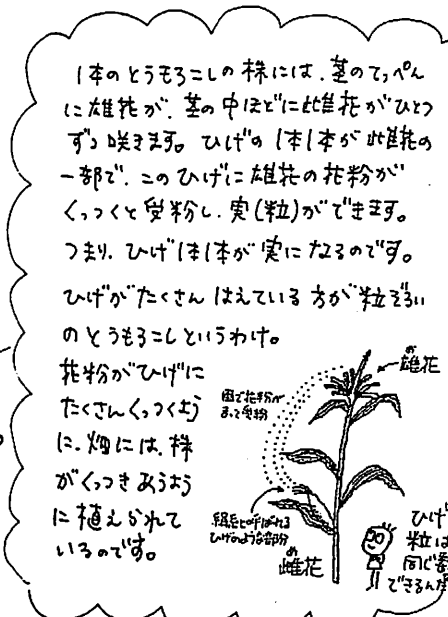 1本のとうもろこしの株には、茎のてっぺん
に雄花が、茎の中ほどに雌花がひとつ
ずつ咲きます。ひげの1本1本が雌花の
一部で、このひげに雄花の花粉が
くっつくと受粉し、実(粒)ができます。
つまり、ひげ1本1本が実になるのです。
ひげがたくさんはえている方が粒ぞろい
のとうもろこしというわけ。
花粉がひげに
たくさんくっつくよう
に、畑には、株
がくっつきあうよう
に植えられて
いるのです。
お
雄花
風で花粉が
まって受粉
絹糸と呼ばれる
ひげのような部分
め
雌花
ひげ
粒は
同じ
できるんだ